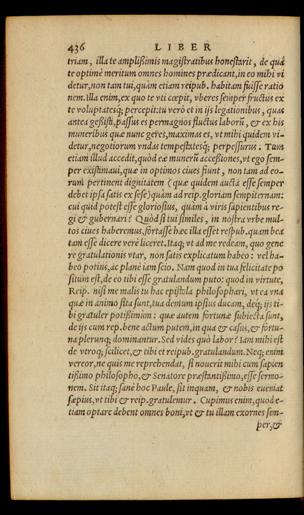 436 LIBER
triam, illa te amplißimis magistratibus honestarit, de quá
te optimè meritum omnes homines prædicant, in eo mihi vi
detur, non tam tui, quàm etiam reipub. habitam fuisse ratio
nem. illa enim, ex quo te vti cœpit, vberes semper fructus ex
te voluptatesq́; percepit: tu verò et in ijs legationibus, quas
antea geßisti, passus es permagnos fluctus laborũ, & ex his
muneribus quæ nunc geres, maximas es, vt mihi quidem vi-
detur, negotiorum vndas tempestatesq́; perpessurus. Tum
etiam illud accedit, quòd eæ munerũ acceßiones, vt ego sem-
per existimaui, quæ in optimos ciues fiunt, non tam ad eo-
rum pertinent dignitatem (quæ quidem auctâ esse semper
debet ipsa satis ex sese) quàm ad reip. gloriam sempiternam:
cui quid potest esse gloriosius, quàm à viris sapientibus re-
gi & gubernari? Quòd si tui similes, in nostra vrbe mul-
tos ciues haberemus, fortasse hæc illa esset respub. quam bea
tam esse dicere verè liceret. Itaq; vt ad me redeam, quo gene
re gratulationis vtar, non satis explicatum habeo: vel ha-
beo potius, ac planè iam scio. Nam quod in tua felicitate po
situm est, de eo tibi esse gratulandum puto: quod in virtute,
Reip. nisi me malis tu hac epistola philosophari, vt ea vna
quæ in animo sita sunt, tua demum ipsius ducam, deq́; ijs ti-
bi gratuler potißimùm: quæ autem fortunæ subiecta sunt,
de ijs cum rep. bene actum putem, in qua & casus, & fortu-
na plerunq; dominantur. Sed vides quò labor? Iam mihi est
de vtroq; scilicet, & tibi et reipub. gratulandum. Neq; enim
vereor, ne quis me reprehendat, si nouerit mihi cum sapien
tißimo philosopho, & Senatore præstantißimo, esse sermo-
nem. Sit itaq; sanè hoc Paule, sit inquam, & nobis eueniat
sæpius, vt tibi & reip. gratulemur. Cupimus enim, quod e-
tiam optare debent omnes boni, vt & tu illam exornes sem-
per, &